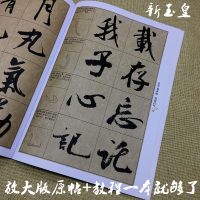 新玉皇
載存忘
我子心記
月九氣
放大版原帖+教程一本就够了